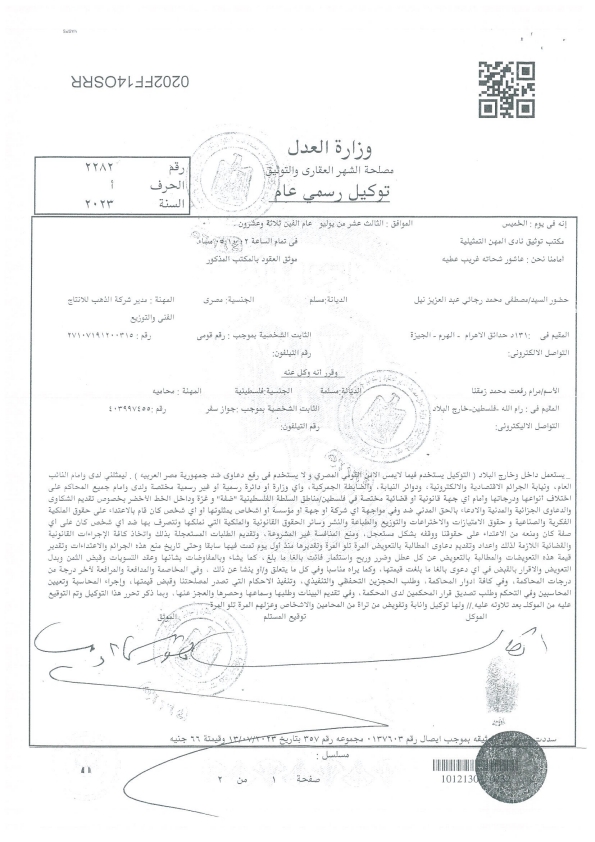 0202FF14OSRR
وزارة العدل
مصلحة الشهر العقارى والتوثيق
توكيل رسمي عام
رقم ٢٢٨٢
الحرف أ
السنة ٢٠٢٣
إنه فى يوم : الخميس الموافق : الثالث عشر من يوليو عام الفين ثلاثة وعشرون .
مكتب توثيق نادى المهن التمثيلية فى تمام الساعة
امامنا نحن : عاشور شحاته غريب عطيه موثق العقود بالمكتب المذكور
حضور السيد/مصطفى محمد رجائي عبد العزيز نيل الديانة:مسلم الجنسية: مصرى المهنة : مدير شركة الذهب للانتاج
الفنى والتوزيع
المقيم فى : ١٣١د حدائق الاهرام - الهرم - الجيزة الثابت الشخصية بموجب : رقم قومى رقم : ٢٧١٠٧١٩١٢٠٠٣١٥
التواصل الالكترونى: رقم التيلفون:
وقرر انه وكل عنه
الاسم/مرام رفعت محمد زمقنا الديانة:مسلمة الجنسية:فلسطينية المهنة : محاميه
المقيم فى : رام الله -فلسطين-خارج البلاد الثابت الشخصية بموجب : جواز سفر رقم :٤٠٣٩٩٧٤٥٥
التواصل الاليكترونى: رقم التيلفون:
_ يستعمل داخل وخارج البلاد ( التوكيل يستخدم فيما لايمس الامن القومى المصري و لا يستخدم فى رفع دعاوى ضد جمهورية مصر العربيه ) . ليمثلني لدى وامام النائب
العام، ونيابة الجرائم الاقتصادية والالكترونية، ودوائر النيابة، والضابطة الجمركية، واي وزارة او دائرة رسمية أو غير رسمية مختصة ولدى وامام جميع المحاكم على
اختلاف انواعها ودرجاتها وأمام أي جهة قانونية أو قضائية مختصة في فلسطين/مناطق السلطة الفلسطينية "ضفة" و غزة وداخل الخط الأخضر بخصوص تقديم الشكاوى
والدعاوى الجزائية والمدنية والادعاء بالحق المدني ضد وفي مواجهة اي شركة او جهة أو مؤسسة او اشخاص يمثلونها أو اي شخص كان قام بالاعتداء على حقوق الملكية
الفكرية والصناعية و حقوق الامتيازات والاختراعات والتوزيع والطباعة والنشر وسائر الحقوق القانونية والملكية التي نملكها ونتصرف بها ضد اي شخص كان على اي
صفة كان ومنعه من الاعتداء على حقوقنا ووقفه بشكل مستعجل، ومنع المنافسة غير المشروعة، وتقديم الطلبات المستعجلة بذلك واتخاذ كافة الإجراءات القانونية
والقضائية اللازمة لذلك واعداد وتقديم دعاوى المطالبة بالتعويض المرة تلو المرة وتقديرها منذ اول يوم تمت فيما سابقا وحتى تاريخ منع هذه الجرائم والاعتداءات وتقدير
قيمة هذه التعويضات والمطالبة بالتعويض عن كل عطل وضرر وربح واستثمار فائت بالغا ما بلغ، كما يشاء وبالمفاوضات بشانها وعقد التسويات وقبض الثمن وبدل
التعويض والاقرار بالقبض في اي دعوى بالغا ما بلغت قيمتها، وكما يراه مناسبا وفي كل ما يتعلق و/او ينشا عن ذلك . وفي المخاصمة والمدافعة والمرافعة لآخر درجة من
درجات المحاكمة، وفي كافة ادوار المحاكمة، وطلب الحجزين التحفظي والتنفيذي، وتنفيذ الاحكام التي تصدر لمصلحتنا وقبض قيمتها، وإجراء المحاسبة وتعيين
المحاسبين وفي التحكيم وطلب تصديق قرار المحكمين لدى المحكمة، وفي تقديم البينات وطلبها وسماعها وحصرها والعجز عنها، وبما ذكر تحرر هذا التوكيل وتم التوقيع
عليه من الموكل بعد تلاوته عليه.// ولها توكيل وانابة وتفويض من تراة من المحامين والاشخاص وعزلهم المرة تلو المرة
الموكل توقيع المستلم الموثق
سددت بموجب ايصال رقم ٠١٣٧٦٠٣ مجموعه رقم ٣٥٧ بتاريخ ١٣/٠٧/٢٠٢٣ وقيمتة ٦٦ جنيه
مسلسل :
صفحة ١ من ٢